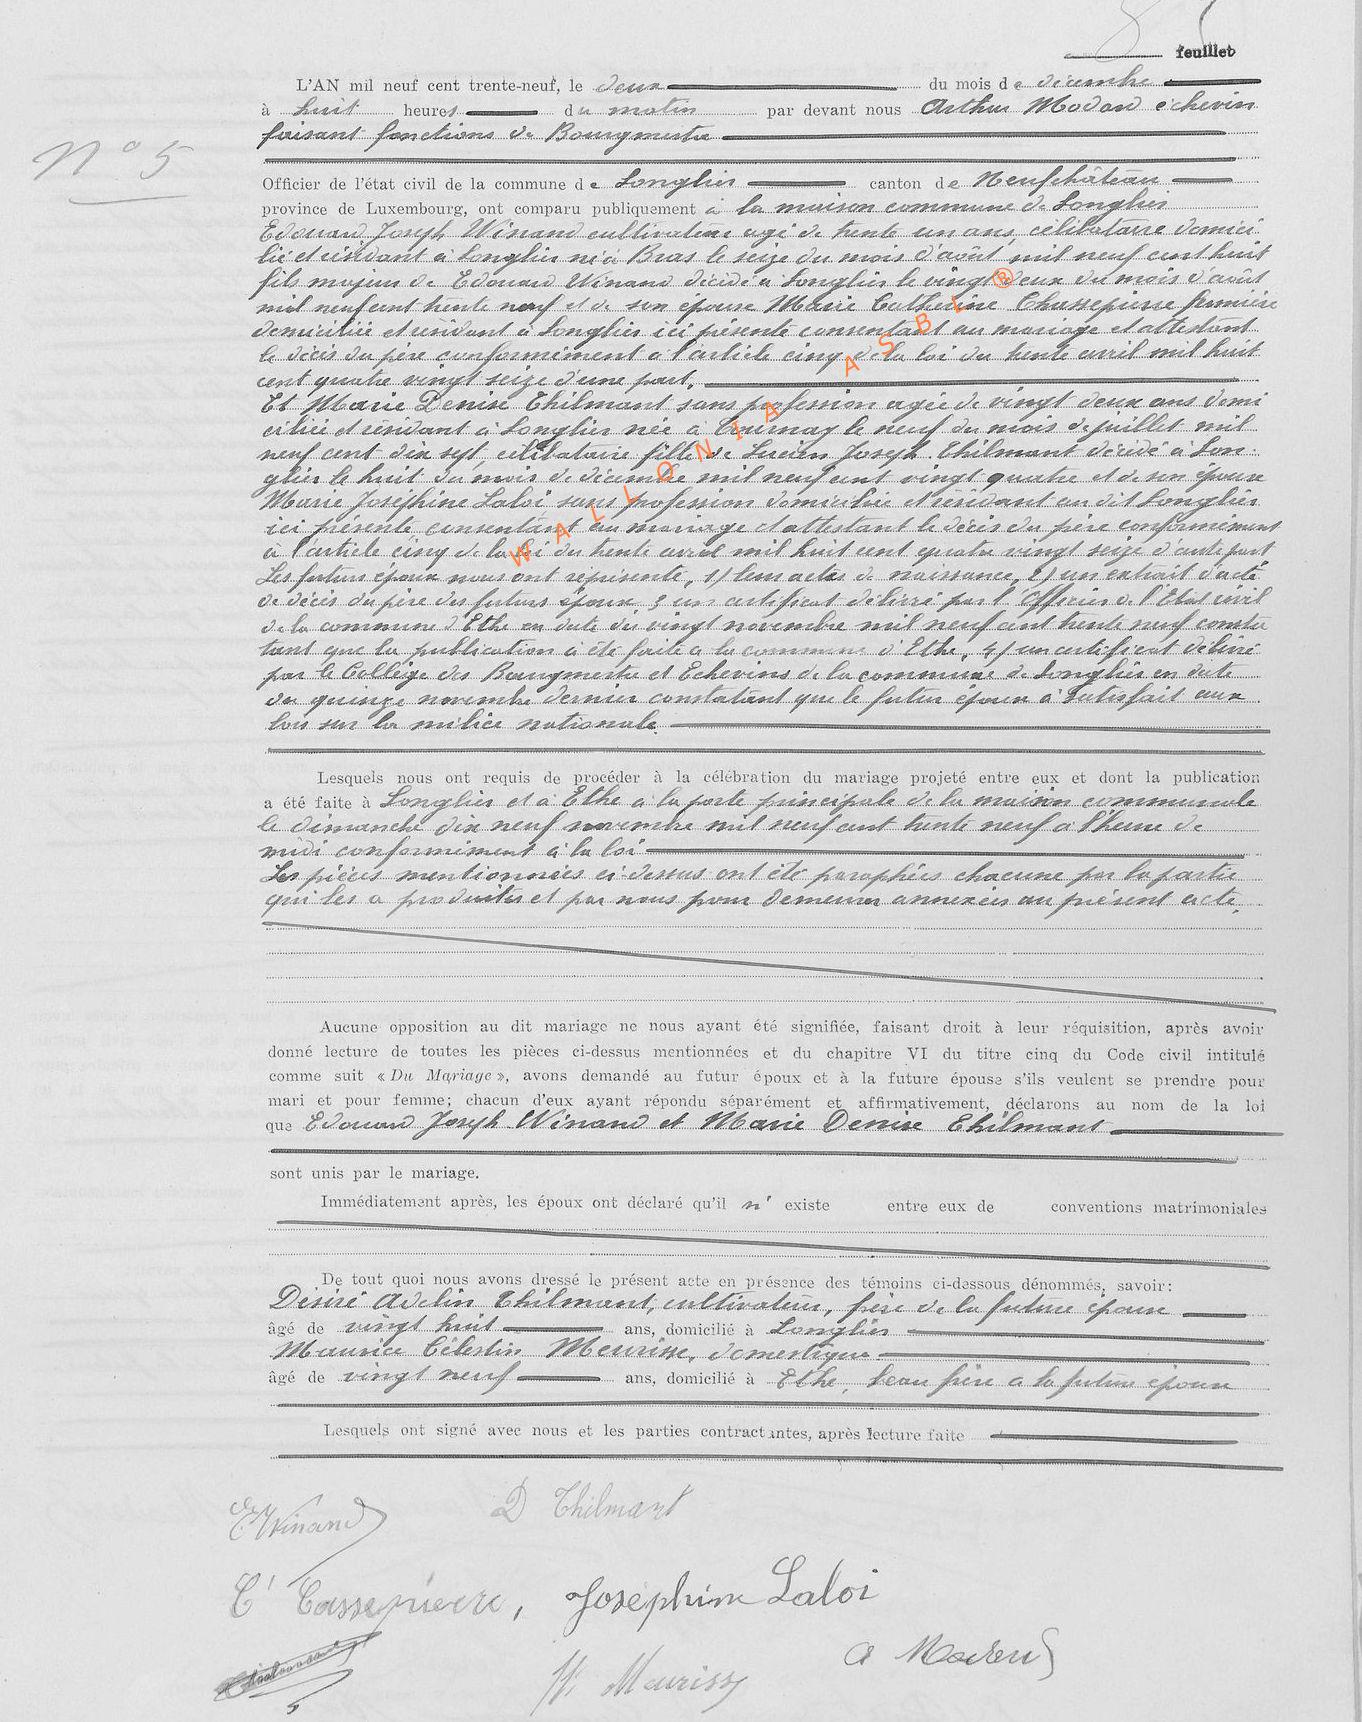 8 5
feuillet
L'AN mil neuf cent trente-neuf, le deux du mois de décembre
à huit heures du matin par devant nous Arthur Modard échevin
faisant fonctions de Bourgmestre
N° 5
Officier de l'état civil de la commune de Longlier canton de Neufchâteau
province de Luxembourg, ont comparu publiquement à la maison commune de Longlier
Edouard Joseph Winand cultivateur agé de trente un ans, célibataire domici
lié et résidant à Longlier né à Bras le seize du mois d'août mil neuf cent huit
fils majeur de Edouard Winand décédé à Longlier le vingt deux du mois d'août
mil neuf cent trente neuf et de son épouse Marie Catherine Chassepierre fermière
domiciliée et résidant à Longlier ici présente consentant au mariage et attestant
le décès du père conformément à l'article cinq de la loi du trente avril mil huit
cent quatre vingt seize d'une part.
Et Marie Denise Thilmant sans profession agée de vingt deux ans domi
ciliée et résidant à Longlier née à Tournay le neuf du mois de juillet mil
neuf cent dix sept, célibataire fille de Lucien Joseph Thilmant décédé à Lon-
glier le huit du mois de décembre mil neuf cent vingt quatre et de son épouse
Marie Joséphine Laloi sans profession domiciliée et résidant au dit Longlier
ici présente consentant au mariage et attestant le décès du père conformément
à l'article cinq de la loi du trente avril mil huit cent quatre vingt seize d'autre part
Les futurs époux nous ont représenté, 1) leurs actes de naissance, 2) un extrait d'acte
de décès du père des futurs époux 3 un certificat délivré par l'Officier de l'Etat civil
de la commune d'Ethe en date du vingt novembre mil neuf cent trente neuf consta
tant que la publication a été faite à la commune d'Ethe, 4) un certificat délivré
par le Collège des Bourgmestre et Echevins de la commune de Longlier en date
du quinze novembre dernier constatant que le futur époux a satisfait aux
lois sur la milice nationale.
Lesquels nous ont requis de procéder à la célébration du mariage projeté entre eux et dont la publication
a été faite à Longlier et à Ethe à la porte principale de la maison communale
le dimanche dix neuf novembre mil neuf cent trente neuf à l'heure de
midi conformément à la loi
Les pièces mentionnées ci-dessus ont été paraphées chacune par la partie
qui les a produites et par nous pour demeurer annexées au présent acte.
Aucune opposition au dit mariage ne nous ayant été signifiée, faisant droit à leur réquisition, après avoir
donné lecture de toutes les pièces ci-dessus mentionnées et du chapitre VI du titre cinq du Code civil intitulé
comme suit « Du Mariage », avons demandé au futur époux et à la future épouse s'ils veulent se prendre pour
mari et pour femme; chacun d'eux ayant répondu séparément et affirmativement, déclarons au nom de la loi
que Edouard Joseph Winand et Marie Denise Thilmant
sont unis par le mariage.
Immédiatement après, les époux ont déclaré qu'il n' existe entre eux de conventions matrimoniales
De tout quoi nous avons dressé le présent acte en présence des témoins ci-dessous dénommés, savoir:
Désiré Adelin Thilmant, cultivateur, frère de la future épouse
âgé de vingt huit ans, domicilié à Longlier
Maurice Célestin Meurisse, domestique
âgé de vingt neuf ans, domicilié à Ethe, beau frère à la future épouse
Lesquels ont signé avec nous et les parties contractantes, après lecture faite
E Winand D Thilmant
C Cassepierre, Joséphine Laloi
Thilmant M Meurisse A Modard
WALLONIA ASBL ®